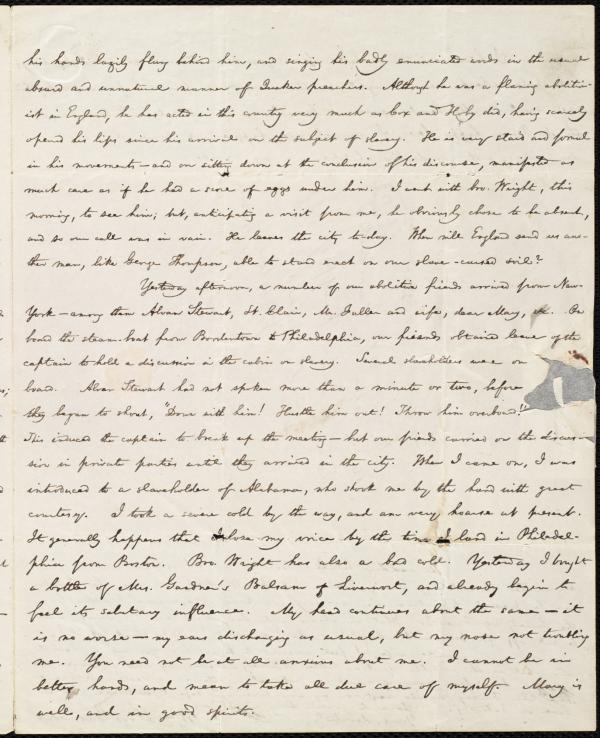 his hands lazily flung behind him, and singing his badly enunciated words in the usual
absurd and unnatural manner of Quaker preachers. Although he was a flaming abolition-
ist in England, he has acted in this country very much as Cox and Hoby did, having scarcely
opened his lips since his arrival on the subject of slavery. He is very staid and formal
in his movements—and on sitting down at the conclusion of his discourse, manifested as
much care as if he had a score of eggs under him. I went with bro. Wright, this
morning, to see him; but, anticipating a visit from me, he obviously chose to be absent,
and so our call was in vain. He leaves the city to-day. When will England send us ano-
ther man, like George Thompson, able to stand erect on our slave-cursed soil?
Yesterday afternoon, a number of our abolition friends arrived from New-
York—among them Alvan Stewart, St. Clair, Mr. Fuller and wife, dear May, &c. On
board the steam-boat from Bordentown to Philadelphia, our friends obtained leave of the
captain to hold a discussion in the cabin on slavery. Several slaveholders were on
board. Alvan Stewart had not spoken more than a minute or two, before
they began to shout, "Down with him! Hustle him out! Throw him overboard!"
This induced the captain to break up the meeting—but our friends carried on the discus-
sion in private parties until they arrived in the city. When I came on, I was
introduced to a slaveholder of Alabama, who shook me by the hand with great
courtesy. I took a severe cold by the way, and am very hoarse at present.
It generally happens that I lose my voice by the time I land in Philadel-
phia from Boston. Bro. Wright has also a bad cold. Yesterday I bought
a bottle of Mrs. Gardner's Balsam of Liverwort, and already begin to
feel its salutary influence. My head continues about the same—it
is no worse—my ears discharging as usual, but my nose not troubling
me. You need not be at all anxious about me. I cannot be in
better hands, and mean to take all due care of myself. Mary is
well, and in good spirits.